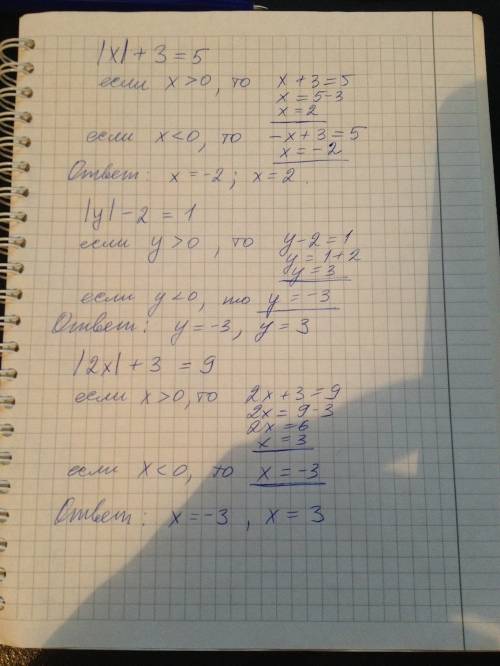 |x| + 3 = 5
если x > 0, то x + 3 = 5
x = 5 - 3
x = 2
если x < 0, то -x + 3 = 5
x = -2
Ответ: x = -2; x = 2.
|y| - 2 = 1
если y > 0, то y - 2 = 1
y = 1 + 2
y = 3
если y < 0, то y = -3
Ответ: y = -3, y = 3
|2x| + 3 = 9
если x > 0, то 2x + 3 = 9
2x = 9 - 3
2x = 6
x = 3
если x < 0, то x = -3
Ответ: x = -3, x = 3